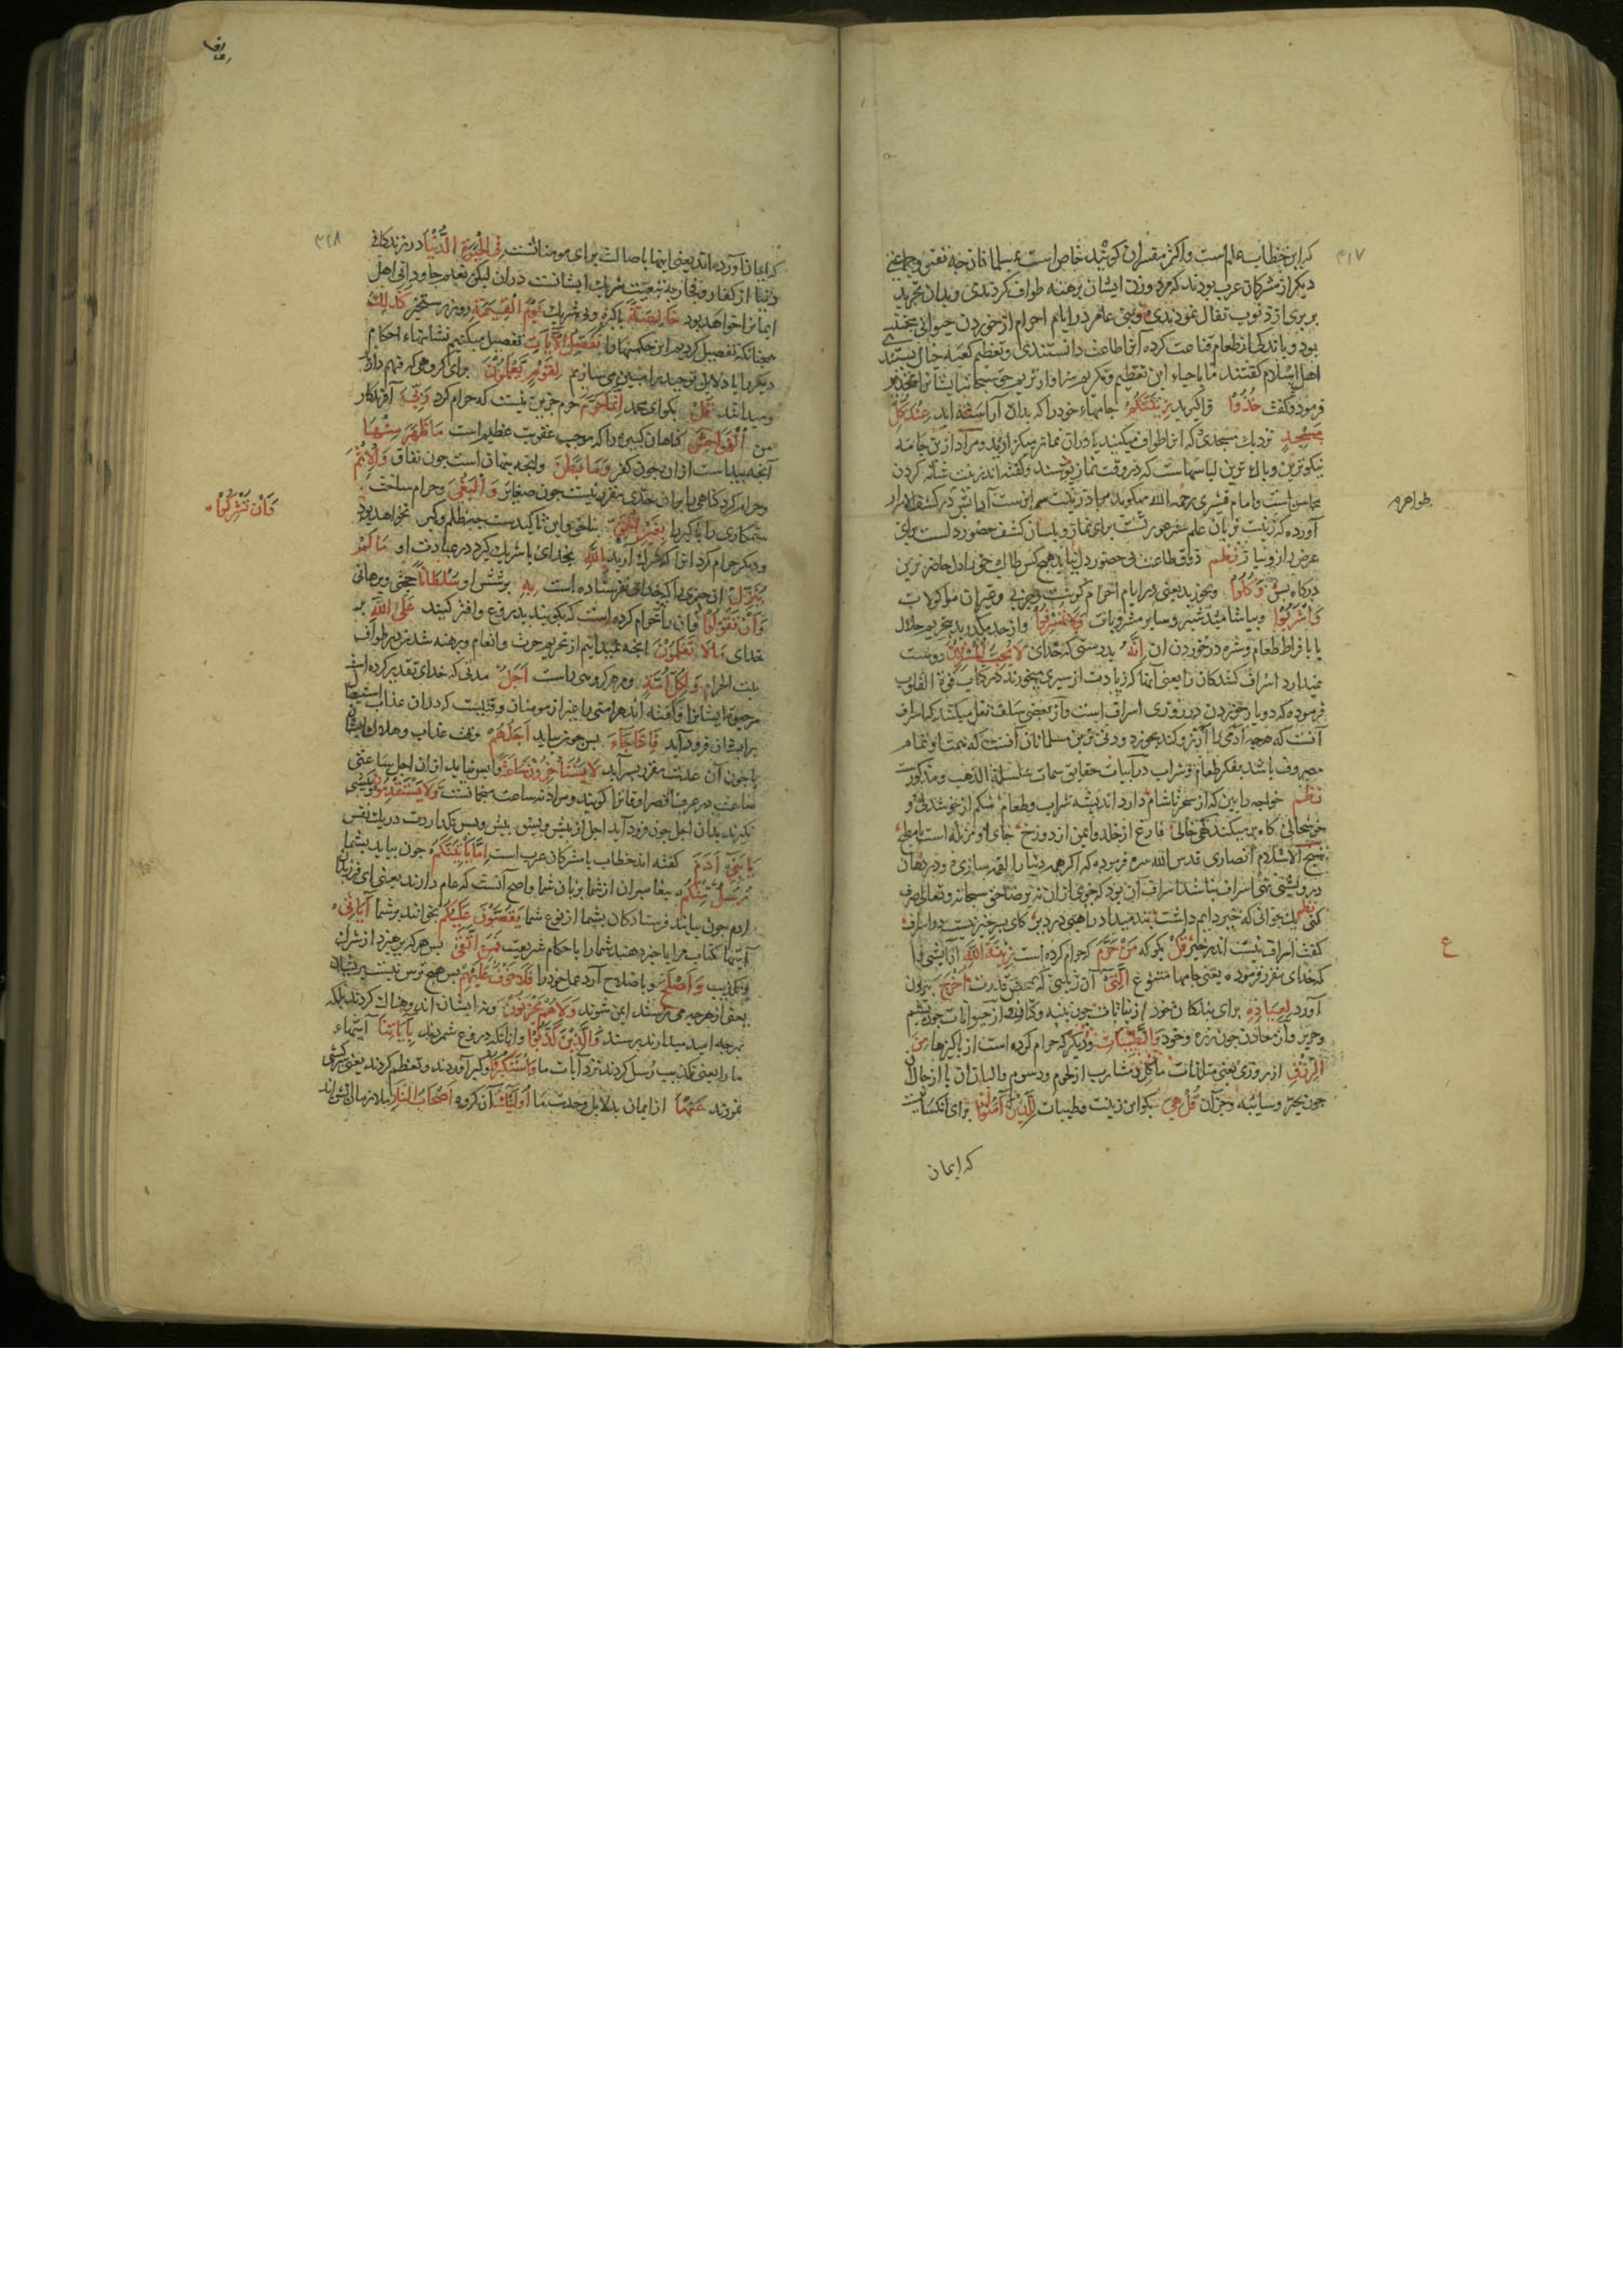 ۳۱۷
که این خطاب عام است و اکثر مفسران کویند خاص است بمسلمانان چه
دیکر از مشرکان عرب بودند که مرد و زن ایشان برهنه طواف کردندی و بدان تجرید
بر بری از ذنوب تفال نمودندی و بنی عامر در ایام احرام از خوردن حیوانی مجتنب
بود و باندکی از طعام قناعت کرده آنرا طاعت دانستندی و تعظیم کعبه خیال بستند
اهل اسلام کفتند ما باحیاء این تعظیم و تکریم سزاوارتریم حق سبحانه ایشانرا
فرمود و کفت خُذُوا فرا کیرید زِینَتَكُمْ جامهاء خود را که بدان آراسته اید عِنْدَ كُلِّ
مَسْجِدٍ نزدیك مسجدی که انرا طواف میکنید یا دران نماز میکزارید و مراد ازین جامه
نیکوترین و پاك ترین لباسهاست که در وقت نماز پوشند و کفته اند زینت شانه کردن
محاسن است و امام قشیری رحمه الله میکوید مراد در کشف الاسرار
طواهر
آورده که زینت بزبان علم ستر عورتست برای نماز و بلسان کشف حضور دلست برای
عرض راز و نیاز نظم ذوق طاعت بی حضور دل نیابد هیچ کس طالب حق را دل حاضر ترین
درکاه بس وَكُلُوا و بخورید یعنی در ایام احرام کوشت و چربی و غیران ماکولات
وَاشْرَبُوا و بیاشامید شیر و سایر مشروبات وَلَا تُسْرِفُوا و از حد مکذرید بتحریم حلال
یا بافراط طعام و شره در خوردن ان إِنَّهُ بدرستی که خدای لَا يُحِبُّ الْمُسْرِفِينَ دوست
نمیدارد اسراف کنندکان را یعنی آنها که زیادت از سیری میخورند در کتاب قوة القلوب
فرموده که دو بار خوردن در روزی اسراف است و از بعضی سلف نقل میکند که اسراف
آنست که هرچه آدمی را آرزو کند بخورد و دنی ترین مسلمانان آنست که همت او تمام
مصروف باشد بفکر طعام و شراب در ابیات حقایق سمات سلسلة الذهب مذکورست
نظم خواجه را بین که از سحر تا شام دارد اندیشه شراب و طعام شکم از خوشدلی و
خوشحالی کاه پر میکند کهی خالی فارغ از خلد و ایمن از دوزخ جای او مزبله است یا مطبخ
شیخ الاسلام انصاری قدس الله سره فرموده که اکر همه دنیا را لقمه سازی و در دهان
درویشی نهی اسراف نباشد اسراف آن بود که چیزی ازان نه برضای حق سبحانه و تعالی صرف
کنی نظم یك جوانی که خیر دایم داشت پند میداد راهبی در دیر کای پسر خیر نیست در اسراف
کفت اسراف نیست اندر خیر قُلْ بکو که مَنْ حَرَّمَ که حرام کرده است زِينَةَ اللَّهِ
ع
که خدای مقرر فرموده یعنی جامها متنوع الَّتِي آن زیبایی که بمحض قدرت أَخْرَجَ بیرون
آورد لِعِبَادِهِ برای بندکان خود از نباتات چون پنبه و کتان و از حیوانات چون پشم
و حریر و از معادن چون زره و خود وَالطَّيِّبَاتِ و دیکر که حرام کرده است از پاکیزها مِنَ
الرِّزْقِ از روزی یعنی متلذذات ماکل و مشارب از لحوم و دسوم و البان
چون بحیره و سایبه و جز آن قُلْ هِيَ بکو این زینت و طیبات لِلَّذِينَ آمَنُوا برای آنکسانست
که ایمان
۳۱۸
که ایمان آورده اند یعنی اینها باصالت برای مومنانست فِي الْحَيٰوةِ الدُّنْيَا در زندکانی
دنیا از کفار و فجار به تبعیت شریك ایشانند دران لیکن نعیم جاودانی اهل
ایمانرا خواهد بود خَالِصَةً پاکیزه و بی شریك يَوْمَ الْقِيٰمَةِ در روز رستخیز كَذٰلِكَ
همچنانکه تفصیل کردیم این حکمتها را نُفَصِّلُ الْآيَاتِ تفصیل میکنیم نشانهاء احکام
دیکر را یا دلایل توحید را مبین می سازیم لِقَوْمٍ يَعْلَمُونَ برای کروهی که فهم دارند
و میدانند قُلْ بکو ای محمد إِنَّمَا حَرَّمَ جزین نیست که حرام کرد رَبِّيَ آفریدکار
من الْفَوَاحِشَ کناهان کبیره را که موجب عقوبت عظیم است مَا ظَهَرَ مِنْهَا
آنچه پیداست ازان چون کفر وَمَا بَطَنَ و انچه پنهان است چون نفاق وَالْإِثْمَ
و حرام کرد کناهی را که بران حدی مقرر نیست چون صغایر وَالْبَغْيَ و حرام ساخت
ستمکاری را یا کبر را بِغَيْرِ الْحَقِّ بناحق و این تاکیدست چه ظلم و کبر بحق نخواهد بود
وَأَنْ تُشْرِكُوا
و دیکر حرام کرد انرا که شرك آرید بِاللَّهِ بخدای یا شریك کیرید در عبادت او مَا لَمْ
يُنَزِّلْ ان چیزی را که خدای نفرستاده است بِهِ بپرستش او سُلْطَانًا حجتی و برهانی
وَأَنْ تَقُولُوا و ان را حرام کرده است که بکویید بدروغ و افترا کنید عَلَى اللَّهِ بر
خدای مَا لَا تَعْلَمُونَ انچه نمیدانید از تحریم حرث و انعام و برهنه شدن در طواف
بیت الحرام وَلِكُلِّ أُمَّةٍ و مر هر کروهی راست أَجَلٌ مدتی که خدای تقدیر کرده است
مر حیوة ایشانرا و کفته اند هر امتی را غیر از مومنان وقتیست که دران عذاب استیصال
بر ایشان فرود آید فَإِذَا جَاءَ پس چون بیاید أَجَلُهُمْ وقت عذاب و هلاك ایشان
یا چون آن مدت مقرر بسر آید لَا يَسْتَأْخِرُونَ سَاعَةً واپس نیایند ازان اجل ساعتی
ساعت در عرف اقصر اوقاترا کویند و مراد نه ساعت منجمانست وَلَا يَسْتَقْدِمُونَ و پیشی
نکیرند بدان اجل چون فرود آید اجل از پیش و پس پیش و پس نکذاردت در یك نفس
يَا بَنِي آدَمَ کفته اند خطاب با مشرکان عرب است إِمَّا يَأْتِيَنَّكُمْ چون بیاید بشما
رُسُلٌ مِنْكُمْ پیغامبران از شما بزبان شما و اصح آنست که عام دارند یعنی ای فرزندان
ادم چون بیایند فرستادکان بشما از نوع شما يَقُصُّونَ عَلَيْكُمْ بخوانند بر شما آيَاتِي
آیتهاء کتاب مرا یا خبر دهند شما را باحکام شریعت فَمَنِ اتَّقَى پس هر که بپرهیزد از شرك
و تکذیب وَأَصْلَحَ و باصلاح آرد عمل خود را فَلَا خَوْفٌ عَلَيْهِمْ پس هیچ ترس نیست بریشان
یعنی از هرچه می ترسند ایمن شوند وَلَا هُمْ يَحْزَنُونَ و نه ایشان اندوهناك کردند بلکه
بهرچه امید میدارند برسند وَالَّذِينَ كَذَّبُوا و انانکه دروغ شمردند بِآيَاتِنَا آیتهاء
ما را یعنی تکذیب رسل کردند نزد آیات ما وَاسْتَكْبَرُوا و کبر آوردند و تعظم کردند یعنی سرکشی
نمودند عَنْهَا از ایمان بدلایل وحدت ما أُولَٰئِكَ آن کروه أَصْحَابُ النَّارِ ملازمان آتش اند